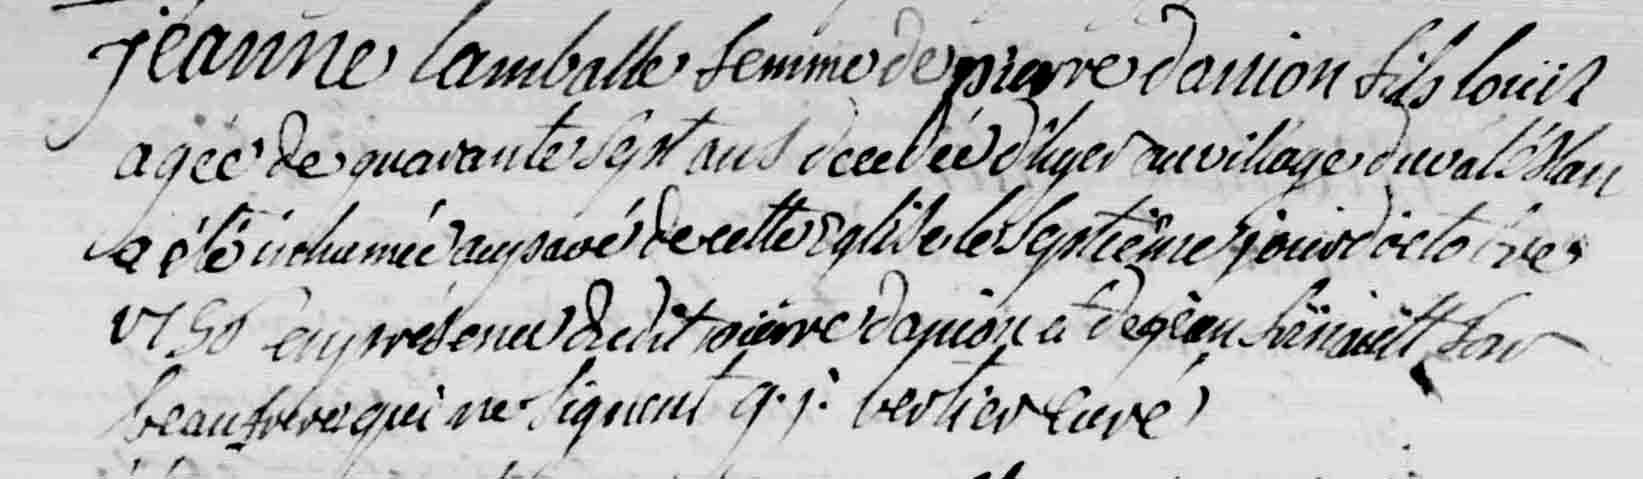 jeanne lamballe femme de pierre danion fils loüis
agée de quarante sept ans decedée d'hyer au village du val
a été inhumée au pavé de cette Eglise le septiéme jour d'octobre
en présence dudit pierre danion et de jean son
beaufrere qui ne signent g. j. bertier curé